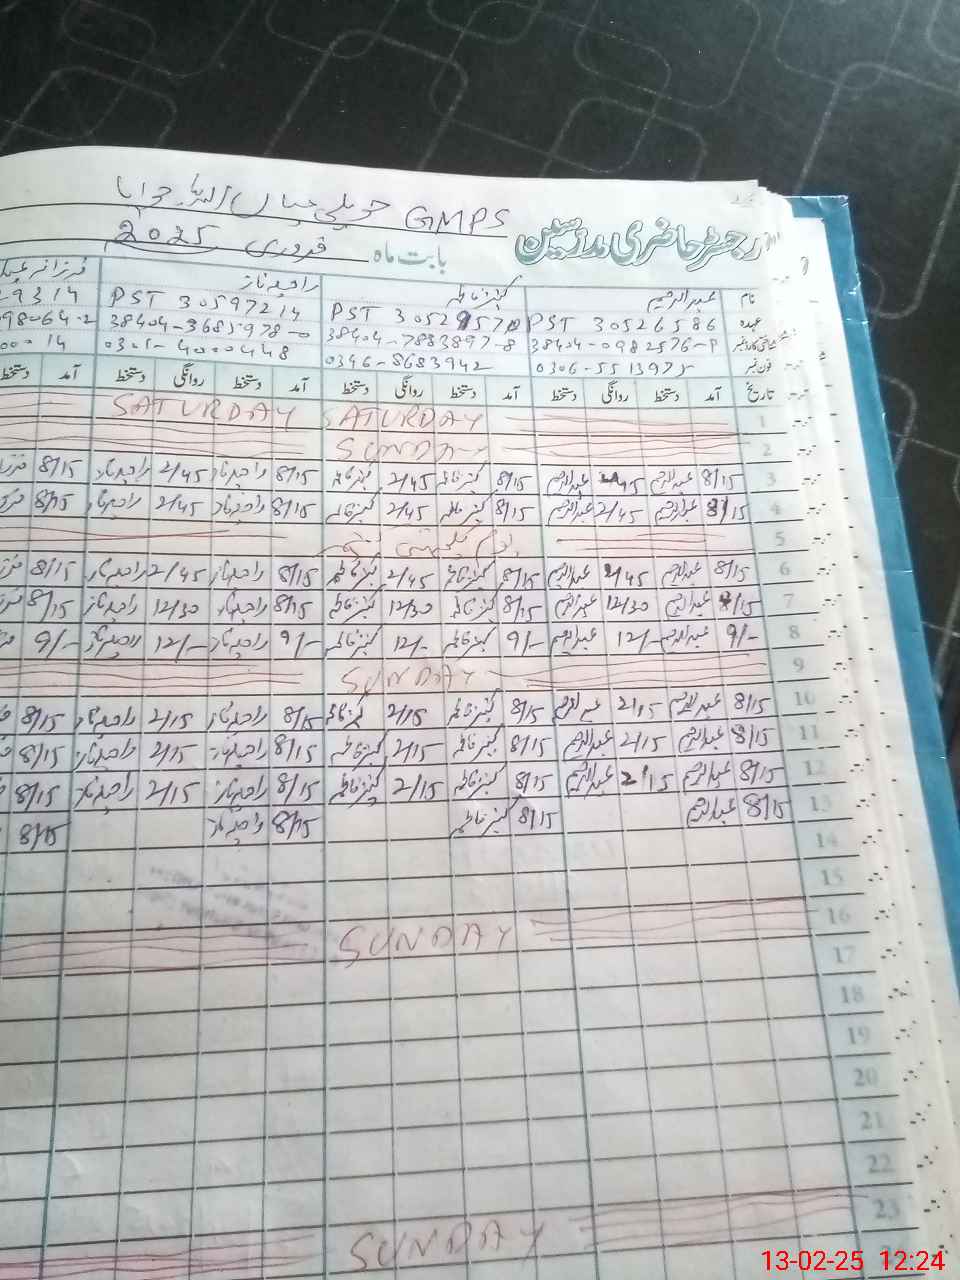 GMPS حویلی میاں
رجسٹر حاضری مدرسین
بابت ماہ فروری 2025
نام عبدالرحیم کنیز فاطمہ راحیلہ ناز
عہدہ PST 30526586 PST PST 30597214 9314
شناختی کارڈ نمبر 38404-0982576-9 38404-7883897-8 38404-3685978-0 98064-2
فون نمبر 0306-5513975 0346-8683942 0301-4000448 00014
تاریخ آمد دستخط روانگی دستخط آمد دستخط روانگی دستخط آمد دستخط روانگی دستخط آمد دستخط
1 SATURDAY SATURDAY
2 SUNDAY
3 8/15 عبدالرحیم 2/45 عبدالرحیم 8/15 کنیز فاطمہ 2/45 کنیز فاطمہ 8/15 راحیلہ ناز 2/45 راحیلہ ناز 8/15
4 8/15 عبدالرحیم 2/45 عبدالرحیم 8/15 کنیز فاطمہ 2/45 کنیز فاطمہ 8/15 راحیلہ ناز 2/45 راحیلہ ناز 8/15
5 یوم یکجہتی کشمیر
6 8/15 عبدالرحیم 2/45 عبدالرحیم 8/15 کنیز فاطمہ 2/45 کنیز فاطمہ 8/15 راحیلہ ناز 2/45 راحیلہ ناز 8/15
7 8/15 عبدالرحیم 12/30 عبدالرحیم 8/15 کنیز فاطمہ 12/30 کنیز فاطمہ 8/15 راحیلہ ناز 12/30 راحیلہ ناز 8/15
8 9/- عبدالرحیم 12/- عبدالرحیم 9/- کنیز فاطمہ 12/- کنیز فاطمہ 9/- راحیلہ ناز 12/- راحیلہ ناز 9/-
9 SUNDAY
10 8/15 عبدالرحیم 2/15 عبدالرحیم 8/15 کنیز فاطمہ 2/15 کنیز فاطمہ 8/15 راحیلہ ناز 2/15 راحیلہ ناز 8/15
11 8/15 عبدالرحیم 2/15 عبدالرحیم 8/15 کنیز فاطمہ 2/15 کنیز فاطمہ 8/15 راحیلہ ناز 2/15 راحیلہ ناز 8/15
12 8/15 عبدالرحیم 2/15 عبدالرحیم 8/15 کنیز فاطمہ 2/15 کنیز فاطمہ 8/15 راحیلہ ناز 2/15 راحیلہ ناز 8/15
13 8/15 عبدالرحیم 8/15 کنیز فاطمہ 8/15 راحیلہ ناز 8/15
14
15
16 SUNDAY
17
18
19
20
21
22
23 SUNDAY
13-02-25 12:24